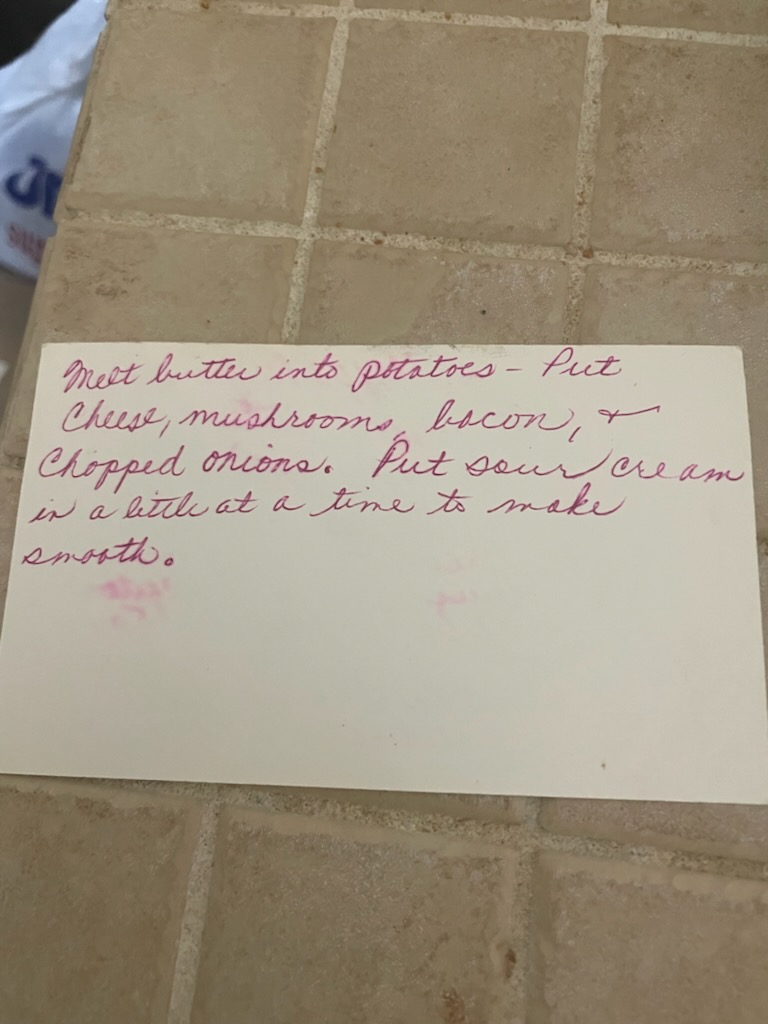 Melt butter into potatoes - Put
Cheese, mushrooms, bacon, &
Chopped onions. Put sour cream
in a little at a time to make
smooth.